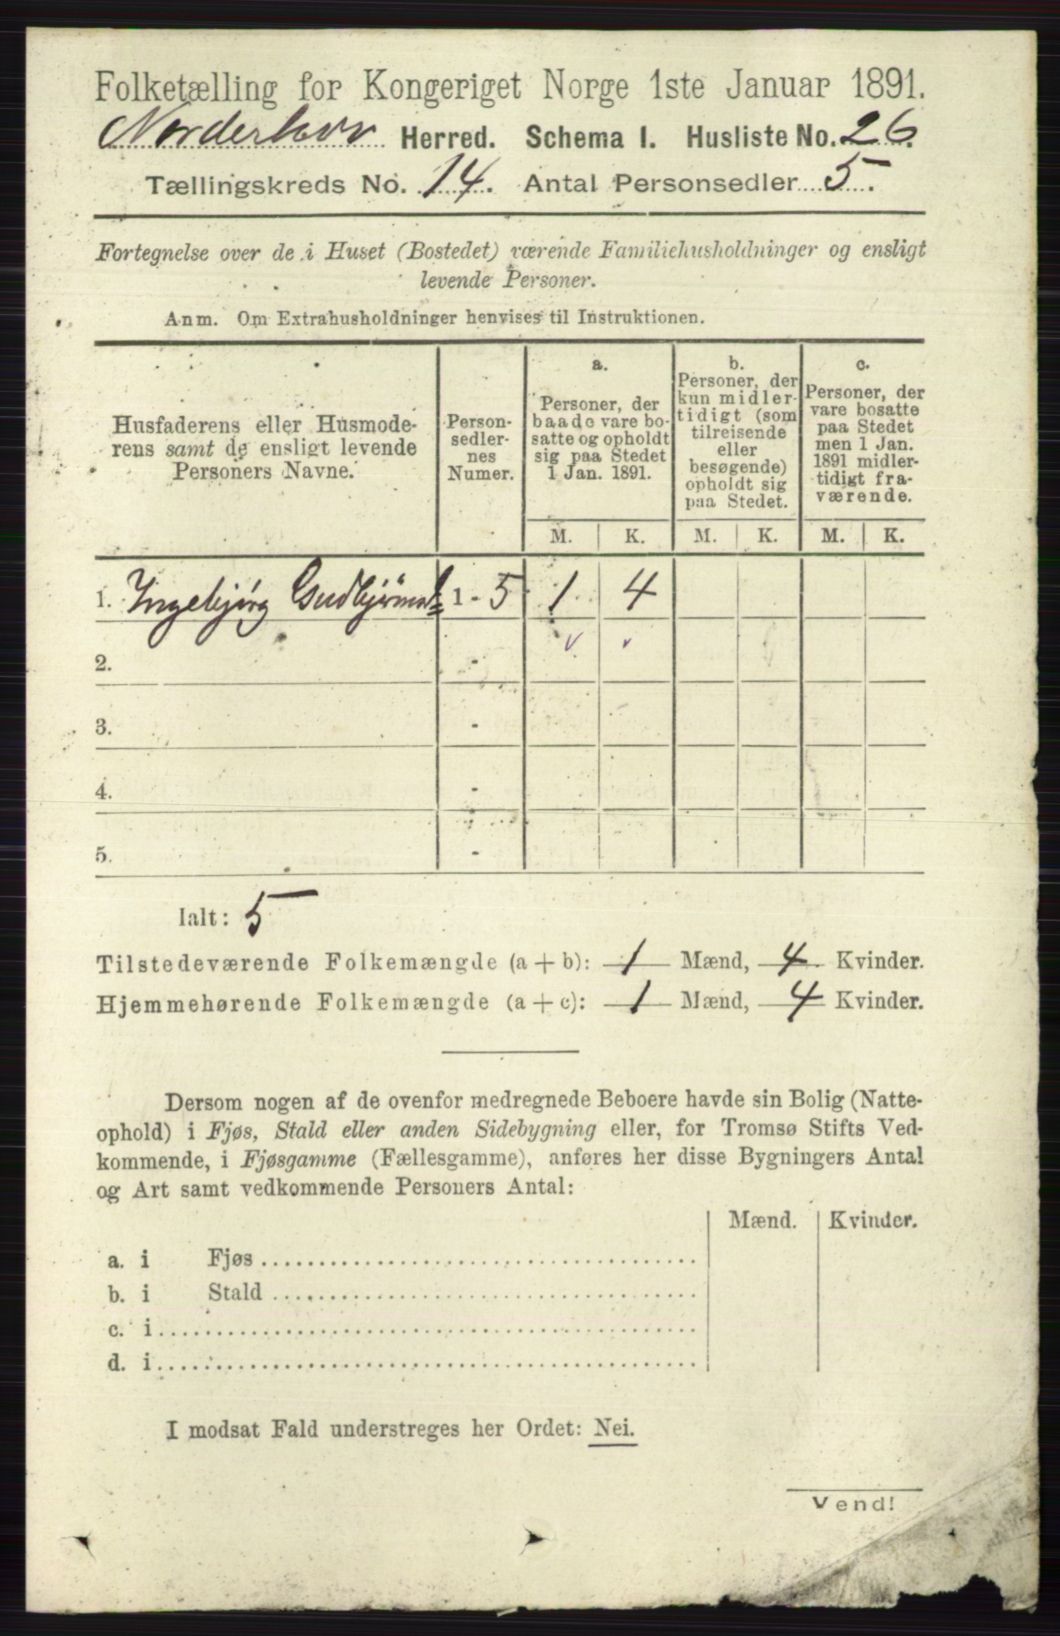 Folketælling for Kongeriget Norge 1ste Januar 1891.
Norderhov Herred. Schema I. Husliste No. 26.
Tællingskreds No. 14. Antal Personsedler 5.
Fortegnelse over de i Huset (Bostedet) værende Familiehusholdninger og ensligt
levende Personer.
Anm. Om Extrahusholdninger henvises til Instruktionen.
Husfaderens eller Husmode-
rens samt de ensligt levende
Personers Navne.
Person-
sedler-
nes
Numer.
a.
Personer, der
baade vare bo-
satte og opholdt
sig paa Stedet
1 Jan. 1891.
b.
Personer, der
kun midler-
tidigt (som
tilreisende
eller
besøgende)
opholdt sig
paa Stedet.
c.
Personer, der
vare bosatte
paa Stedet
men 1 Jan.
1891 midler-
tidigt fra-
værende.
M. K. M. K. M. K.
1. Ingebjørg 1 - 5 1 4
2. -
3. -
4. -
5. -
Ialt: 5
Tilstedeværende Folkemængde (a + b): 1 Mænd, 4 Kvinder.
Hjemmehørende Folkemængde (a + c): 1 Mænd, 4 Kvinder.
Dersom nogen af de ovenfor medregnede Beboere havde sin Bolig (Natte-
ophold) i Fjøs, Stald eller anden Sidebygning eller, for Tromsø Stifts Ved-
kommende, i Fjøsgamme (Fællesgamme), anføres her disse Bygningers Antal
og Art samt vedkommende Personers Antal:
Mænd. Kvinder.
a. i Fjøs
b. i Stald
c. i
d. i
I modsat Fald understreges her Ordet: Nei.
Vend!